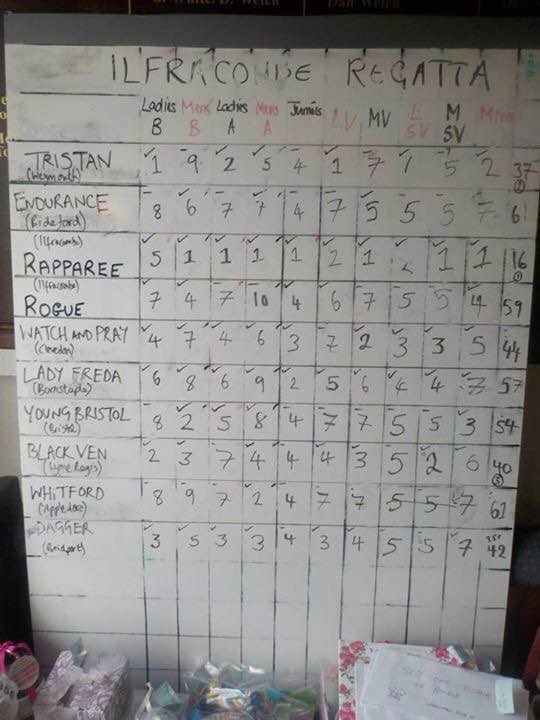 ILFRACOMBE REGATTA
Ladies B Mens B Ladies A Mens A Juniors LV MV L SV M SV
TRISTAN 1 9 2 5 4 1 7 1 5 2 37
(Weymouth)
ENDURANCE 8 6 7 7 4 7 5 5 5 7 61
(Bideford)
(Ilfracombe)
RAPPAREE 5 1 1 1 1 2 1 2 1 1 16
(Ilfracombe)
ROGUE 7 4 7 10 4 6 7 5 5 4 59
WATCH AND PRAY 4 7 4 6 3 7 2 3 3 5 44
(Clevedon)
LADY FREDA 6 8 6 9 2 5 6 4 4 7 57
(Barnstaple)
YOUNG BRISTOL 8 2 5 8 4 7 7 5 5 3 54
(Bristol)
BLACK VEN 2 3 7 4 4 4 3 5 2 6 40
(Lyme Regis)
WHITFORD 8 9 7 2 4 7 7 5 5 7 61
(Appledore)
DAGGER 3 5 3 3 4 3 4 5 5 7 42
(Bridport)